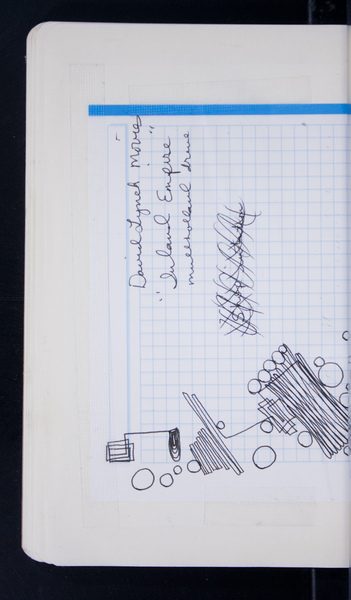 David Lynch Movies
"Inland Empire"
mullholland drive